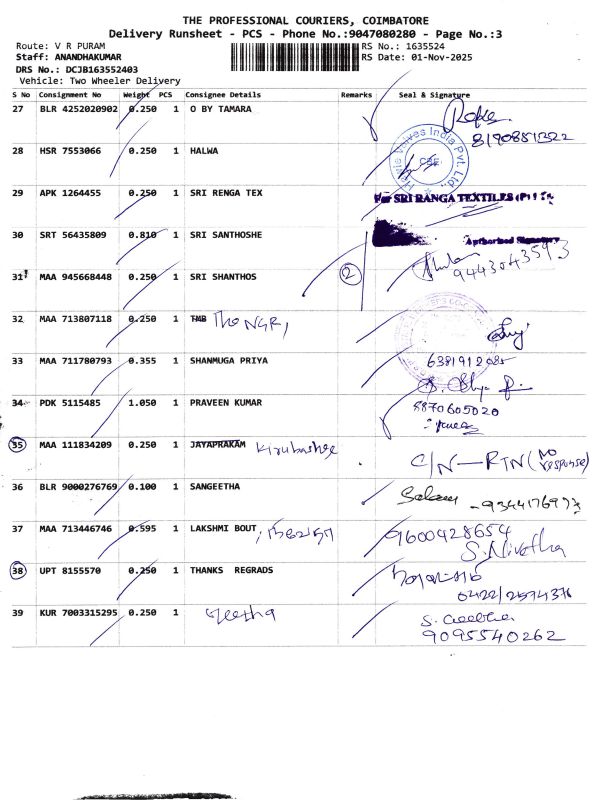 THE PROFESSIONAL COURIERS, COIMBATORE
Delivery Runsheet - PCS - Phone No.:9047080280 - Page No.:3
Route: V R PURAM
RS No.: 1635524
Staff: ANANDHAKUMAR
RS Date: 01-Nov-2025
DRS No.: DCJB163552403
Vehicle: Two Wheeler Delivery
S No Consignment No Weight PCS Consignee Details Remarks Seal & Signature
27 BLR 4252020902 0.250 1 O BY TAMARA
8190881322
28 HSR 7553066 0.250 1 HALWA
Valves India Pvt. Ltd.
CBE
29 APK 1264455 0.250 1 SRI RENGA TEX
For SRI RANGA TEXTILES (P) LTD
30 SRT 56435809 0.810 1 SRI SANTHOSHE
Authorised Signatory
31 MAA 945668448 0.250 1 SRI SHANTHOS 2
9443043593
32 MAA 713807118 0.250 1 TMB
33 MAA 711780793 0.355 1 SHANMUGA PRIYA
6381912085
34 PDK 5115485 1.050 1 PRAVEEN KUMAR
8870605020
35 MAA 111834209 0.250 1 JAYAPRAKAM Kirubashee
C/N - RTN (NO response)
36 BLR 9000276769 0.100 1 SANGEETHA
Salam - 9344176973
37 MAA 713446746 0.595 1 LAKSHMI BOUT
9600428654
S. Nivetha
38 UPT 8155570 0.250 1 THANKS REGRADS
0422/2594376
39 KUR 7003315295 0.250 1 Geetha
9095540262